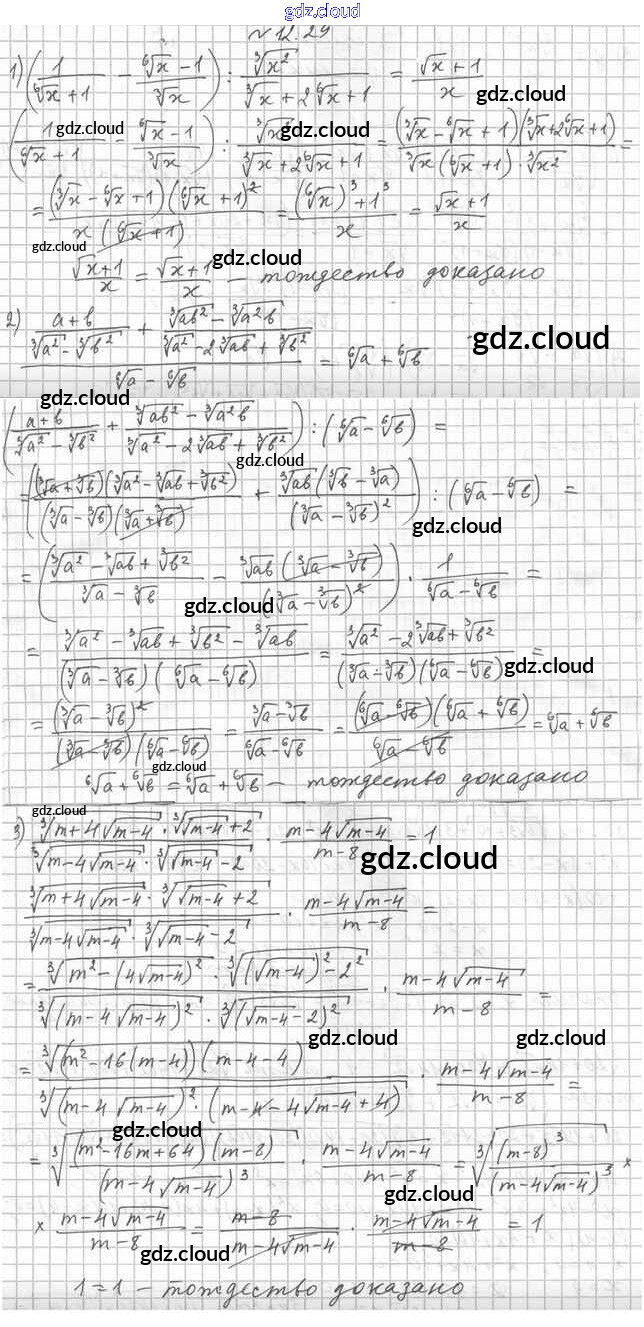 gdz.cloud
№12.29
1) (1/(⁶√x + 1) − (⁶√x − 1)/³√x) : ³√x²/(³√x + 2⁶√x + 1) = (√x + 1)/x
gdz.cloud
(1/(⁶√x + 1) − (⁶√x − 1)/³√x) : ³√x²/(³√x + 2⁶√x + 1) = (³√x − ⁶√x + 1)(³√x + 2⁶√x + 1)/(³√x(⁶√x + 1)·³√x²) =
gdz.cloud gdz.cloud gdz.cloud
= (³√x − ⁶√x + 1)(⁶√x + 1)²/(x(⁶√x + 1)) = ((⁶√x)³ + 1³)/x = (√x + 1)/x
gdz.cloud gdz.cloud
(√x + 1)/x = (√x + 1)/x − тождество доказано
2) ((a + b)/(³√a² − ³√b²) + (³√ab² − ³√a²b)/(³√a² − 2³√ab + ³√b²))/(⁶√a − ⁶√b) = ⁶√a + ⁶√b
gdz.cloud
gdz.cloud
((a + b)/(³√a² − ³√b²) + (³√ab² − ³√a²b)/(³√a² − 2³√ab + ³√b²)) : (⁶√a − ⁶√b) =
gdz.cloud
= ((³√a + ³√b)(³√a² − ³√ab + ³√b²)/((³√a − ³√b)(³√a + ³√b)) + ³√ab(³√b − ³√a)/(³√a − ³√b)²) : (⁶√a − ⁶√b) =
gdz.cloud
= ((³√a² − ³√ab + ³√b²)/(³√a − ³√b) − ³√ab(³√a − ³√b)/(³√a − ³√b)²) · 1/(⁶√a − ⁶√b) =
gdz.cloud
= (³√a² − ³√ab + ³√b² − ³√ab)/((³√a − ³√b)(⁶√a − ⁶√b)) = (³√a² − 2³√ab + ³√b²)/((³√a − ³√b)(⁶√a − ⁶√b)) =
gdz.cloud
= (³√a − ³√b)²/((³√a − ³√b)(⁶√a − ⁶√b)) = (³√a − ³√b)/(⁶√a − ⁶√b) = (⁶√a − ⁶√b)(⁶√a + ⁶√b)/(⁶√a − ⁶√b) = ⁶√a + ⁶√b
gdz.cloud
⁶√a + ⁶√b = ⁶√a + ⁶√b − тождество доказано
gdz.cloud
3) (³√(m + 4√(m−4)) · ³√(√(m−4) + 2))/(³√(m − 4√(m−4)) · ³√(√(m−4) − 2)) · (m − 4√(m−4))/(m − 8) = 1
gdz.cloud
(³√(m + 4√(m−4)) · ³√(√(m−4) + 2))/(³√(m − 4√(m−4)) · ³√(√(m−4) − 2)) · (m − 4√(m−4))/(m − 8) =
= (³√(m² − (4√(m−4))²) · ³√((√(m−4))² − 2²))/(³√((m − 4√(m−4))²) · ³√((√(m−4) − 2)²)) · (m − 4√(m−4))/(m − 8) =
gdz.cloud gdz.cloud
= ³√((m² − 16(m−4))(m − 4 − 4))/³√((m − 4√(m−4))² · (m − 4 − 4√(m−4) + 4)) · (m − 4√(m−4))/(m − 8) =
gdz.cloud
= ³√((m² − 16m + 64)(m − 8)/(m − 4√(m−4))³) · (m − 4√(m−4))/(m − 8) = ³√((m − 8)³/(m − 4√(m−4))³) ×
gdz.cloud
× (m − 4√(m−4))/(m − 8) = (m − 8)/(m − 4√(m−4)) · (m − 4√(m−4))/(m − 8) = 1
gdz.cloud gdz.cloud
1 = 1 − тождество доказано